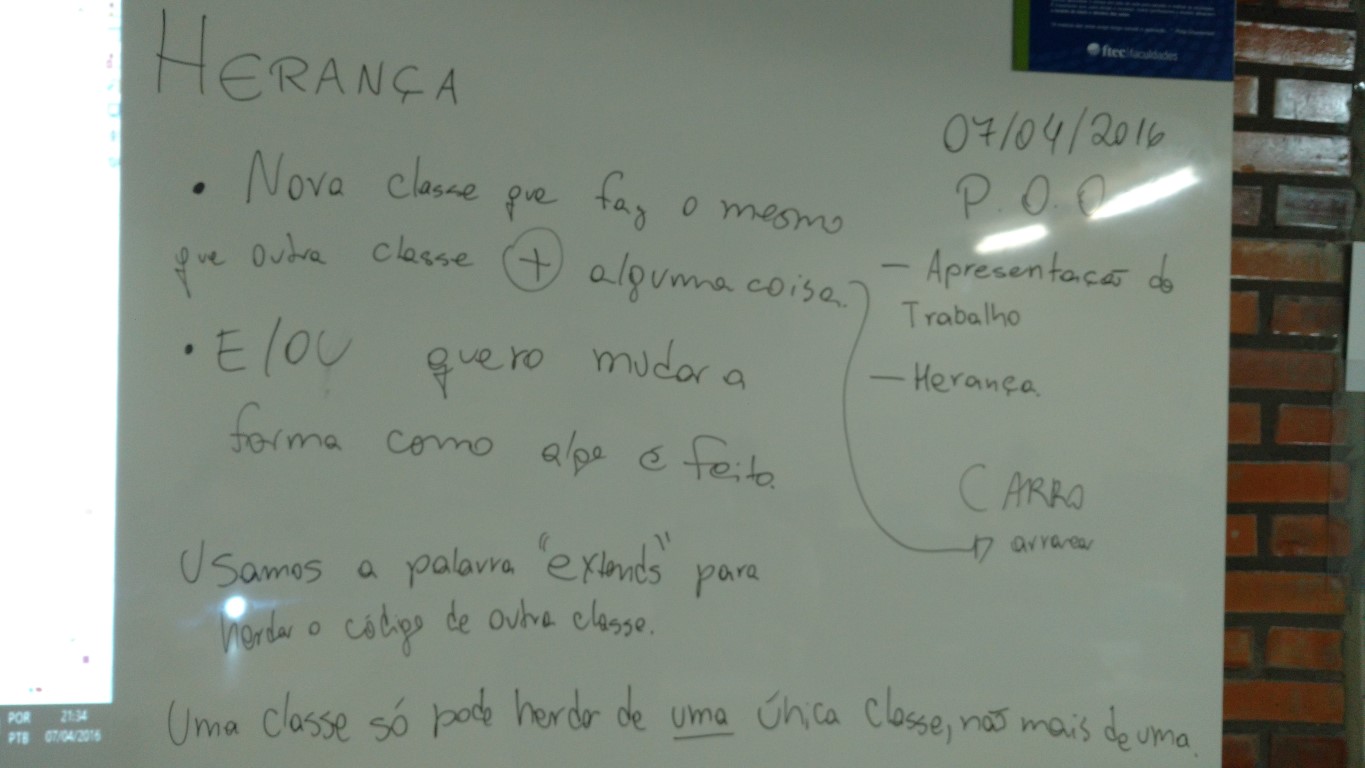 HERANÇA
• Nova classe que faz o mesmo
que outra classe + alguma coisa.
• E/OU quero mudar a
forma como algo é feito.
Usamos a palavra "extends" para
herdar o código de outra classe.
Uma classe só pode herdar de uma única classe, não mais de uma.
07/04/2016
P.O.O
- Apresentação do
Trabalho
- Herança.
CARRO
arrancar
ftec faculdades
POR 21:34
PTB 07/04/2016